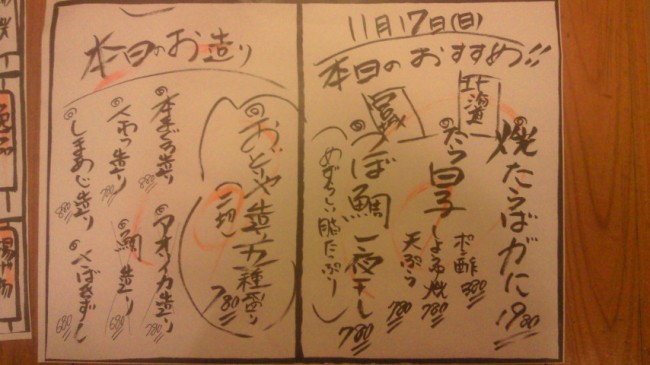 11月17日(日)
本日のおすすめ!!
北海道
焼たらばガに 1980
たら白子
ポン酢 880
しょうゆ焼 780
天ぷら 780
宮城
つぼ鯛一夜干し 780
(めずらしい脂たっぷり)
本日のお造り
おひとりや造り五種盛り
(二切) 780
本まぐろ造り
アオリイカ造り 780
鯛造り 680
しまあじ造り 880